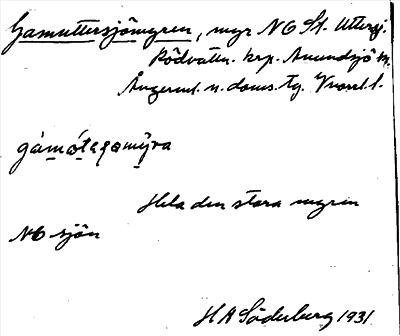 Gamuttersjömyren, myr NO St. Uttersj.
Rödvattn. krp. Anundsjö sn.
Ångerml. n. doms. tg. Vnorrl. l.
gámótasamȳra
Hela den stora myren
NO sjön
H A Söderberg 1931.